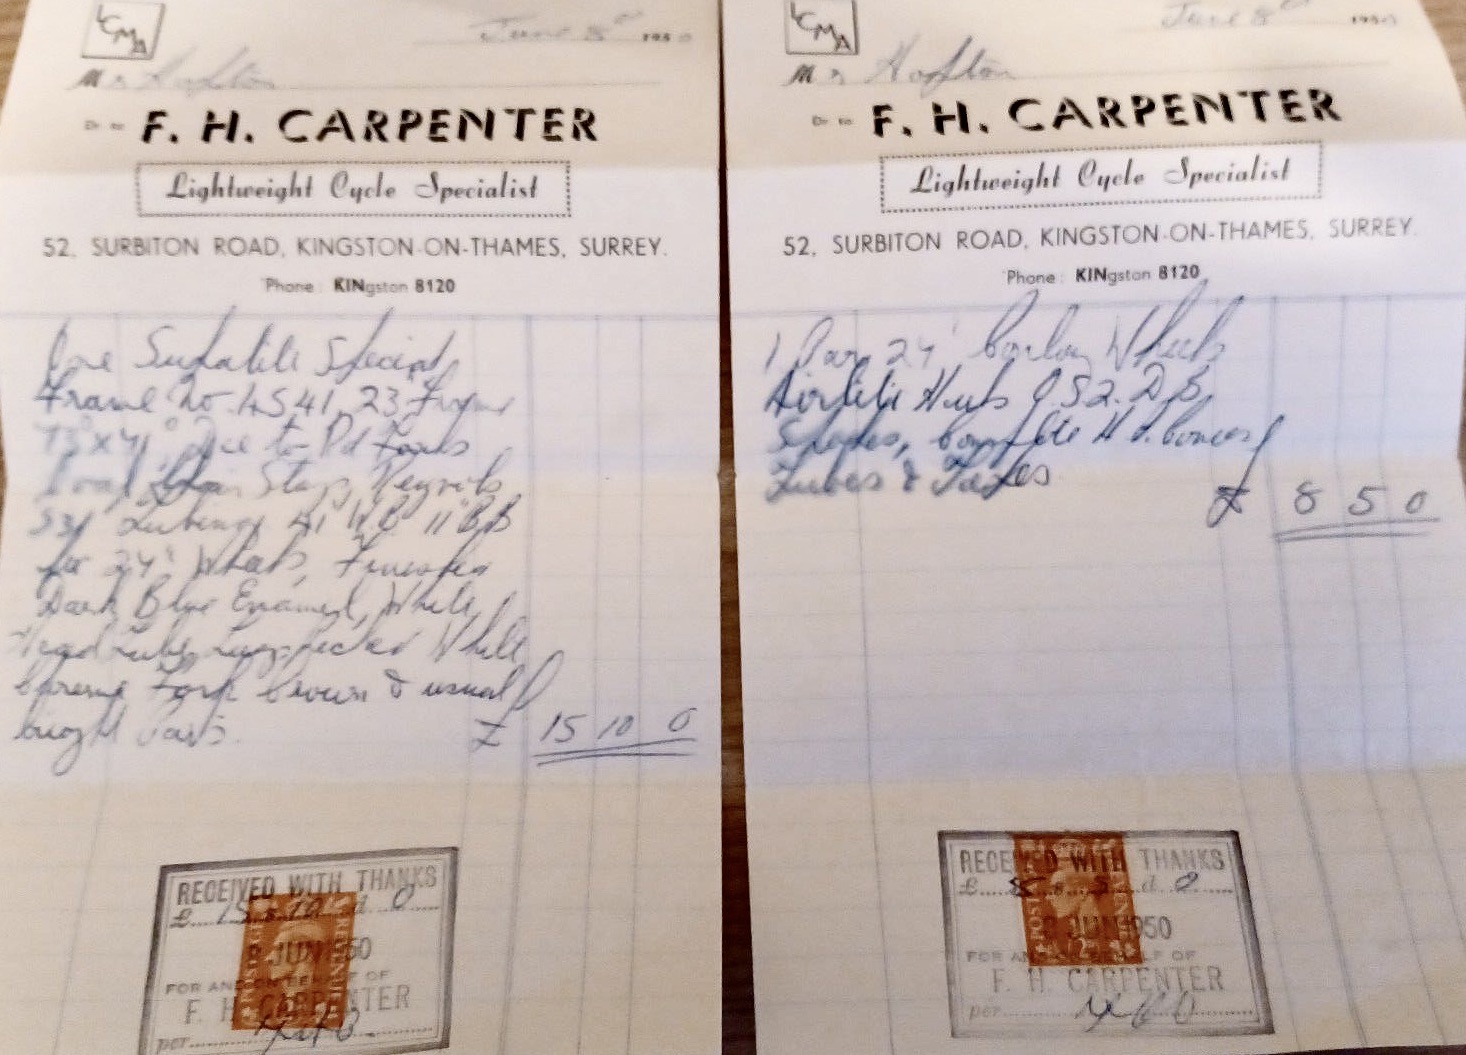 LCMA
June 8th 1950
Mr Hopton
Dr to F. H. CARPENTER
Lightweight Cycle Specialist
52, SURBITON ROAD, KINGSTON-ON-THAMES, SURREY.
Phone : KINgston 8120
One Special
Frame No 4541, 23 Frame
73° x 71° to Forks
Stays, Reynolds
531 Tubing 41" WB 11" BB
for 24" Wheels, Finished
Dark Blue Enamel, White
Head Tube, White
Fork Crown & usual
bright parts. £ 15 10 0
RECEIVED WITH THANKS
£ 15 s 10 d 0
8 JUN 1950
POSTAGE REVENUE
FOR AND ON BEHALF OF
F. H. CARPENTER
per
LCMA
June 8th 1950
Mr Hopton
Dr to F. H. CARPENTER
Lightweight Cycle Specialist
52, SURBITON ROAD, KINGSTON-ON-THAMES, SURREY.
Phone : KINgston 8120
1 Pair 24" Wheels
Airlite Hubs D.B.
Spokes, complete
Tubes & Tapes
£ 8 5 0
RECEIVED WITH THANKS
£ 8 s 5 d 0
8 JUN 1950
POSTAGE REVENUE
FOR AND ON BEHALF OF
F. H. CARPENTER
per